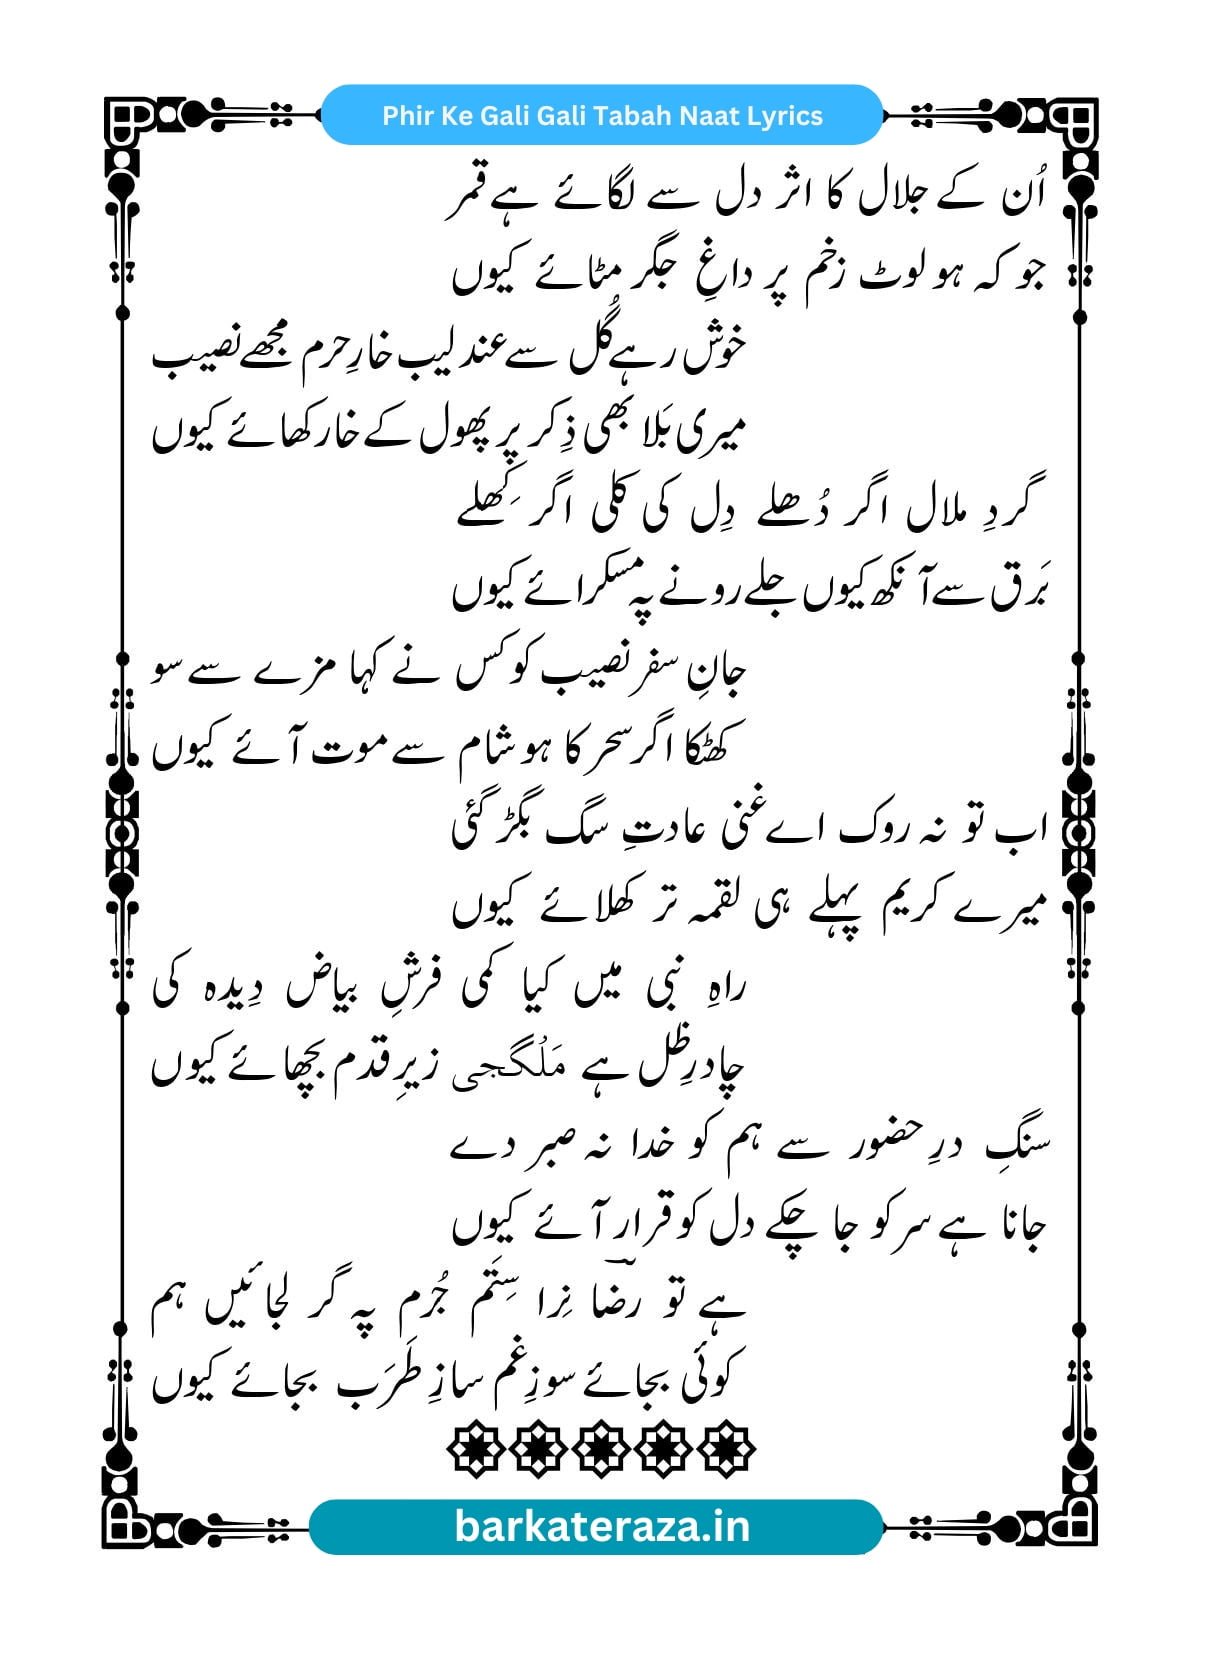 Phir Ke Gali Gali Tabah Naat Lyrics
اُن کے جلال کا اثر دل سے لگائے ہے قمر
جو کہ ہو لوٹ زخم پر داغِ جگر مٹائے کیوں
خوش رہے گُل سے عندلیب خارِ حرم مجھے نصیب
میری بَلا بھی ذِکر پر پھول کے خار کھائے کیوں
گردِ ملال اگر دُھلے دِل کی کلی اگر کِھلے
بَرق سے آنکھ کیوں جلے رونے پہ مسکرائے کیوں
جانِ سفر نصیب کو کس نے کہا مزے سے سو
کھٹکا اگر سحر کا ہو شام سے موت آئے کیوں
اب تو نہ روک اے غنی عادتِ سگ بگڑ گئی
میرے کریم پہلے ہی لقمہ تر کھلائے کیوں
راہِ نبی میں کیا کمی فرشِ بیاض دِیدہ کی
چادرِ ظل ہے مَلُگجی زیرِ قدم بچھائے کیوں
سنگِ درِ حضور سے ہم کو خدا نہ صبر دے
جانا ہے سر کو جا چکے دل کو قرار آئے کیوں
ہے تو رضؔا نِرا سِتَم جُرم پہ گر لجائیں ہم
کوئی بجائے سوزِ غم سازِ طَرَب بجائے کیوں
barkateraza.in